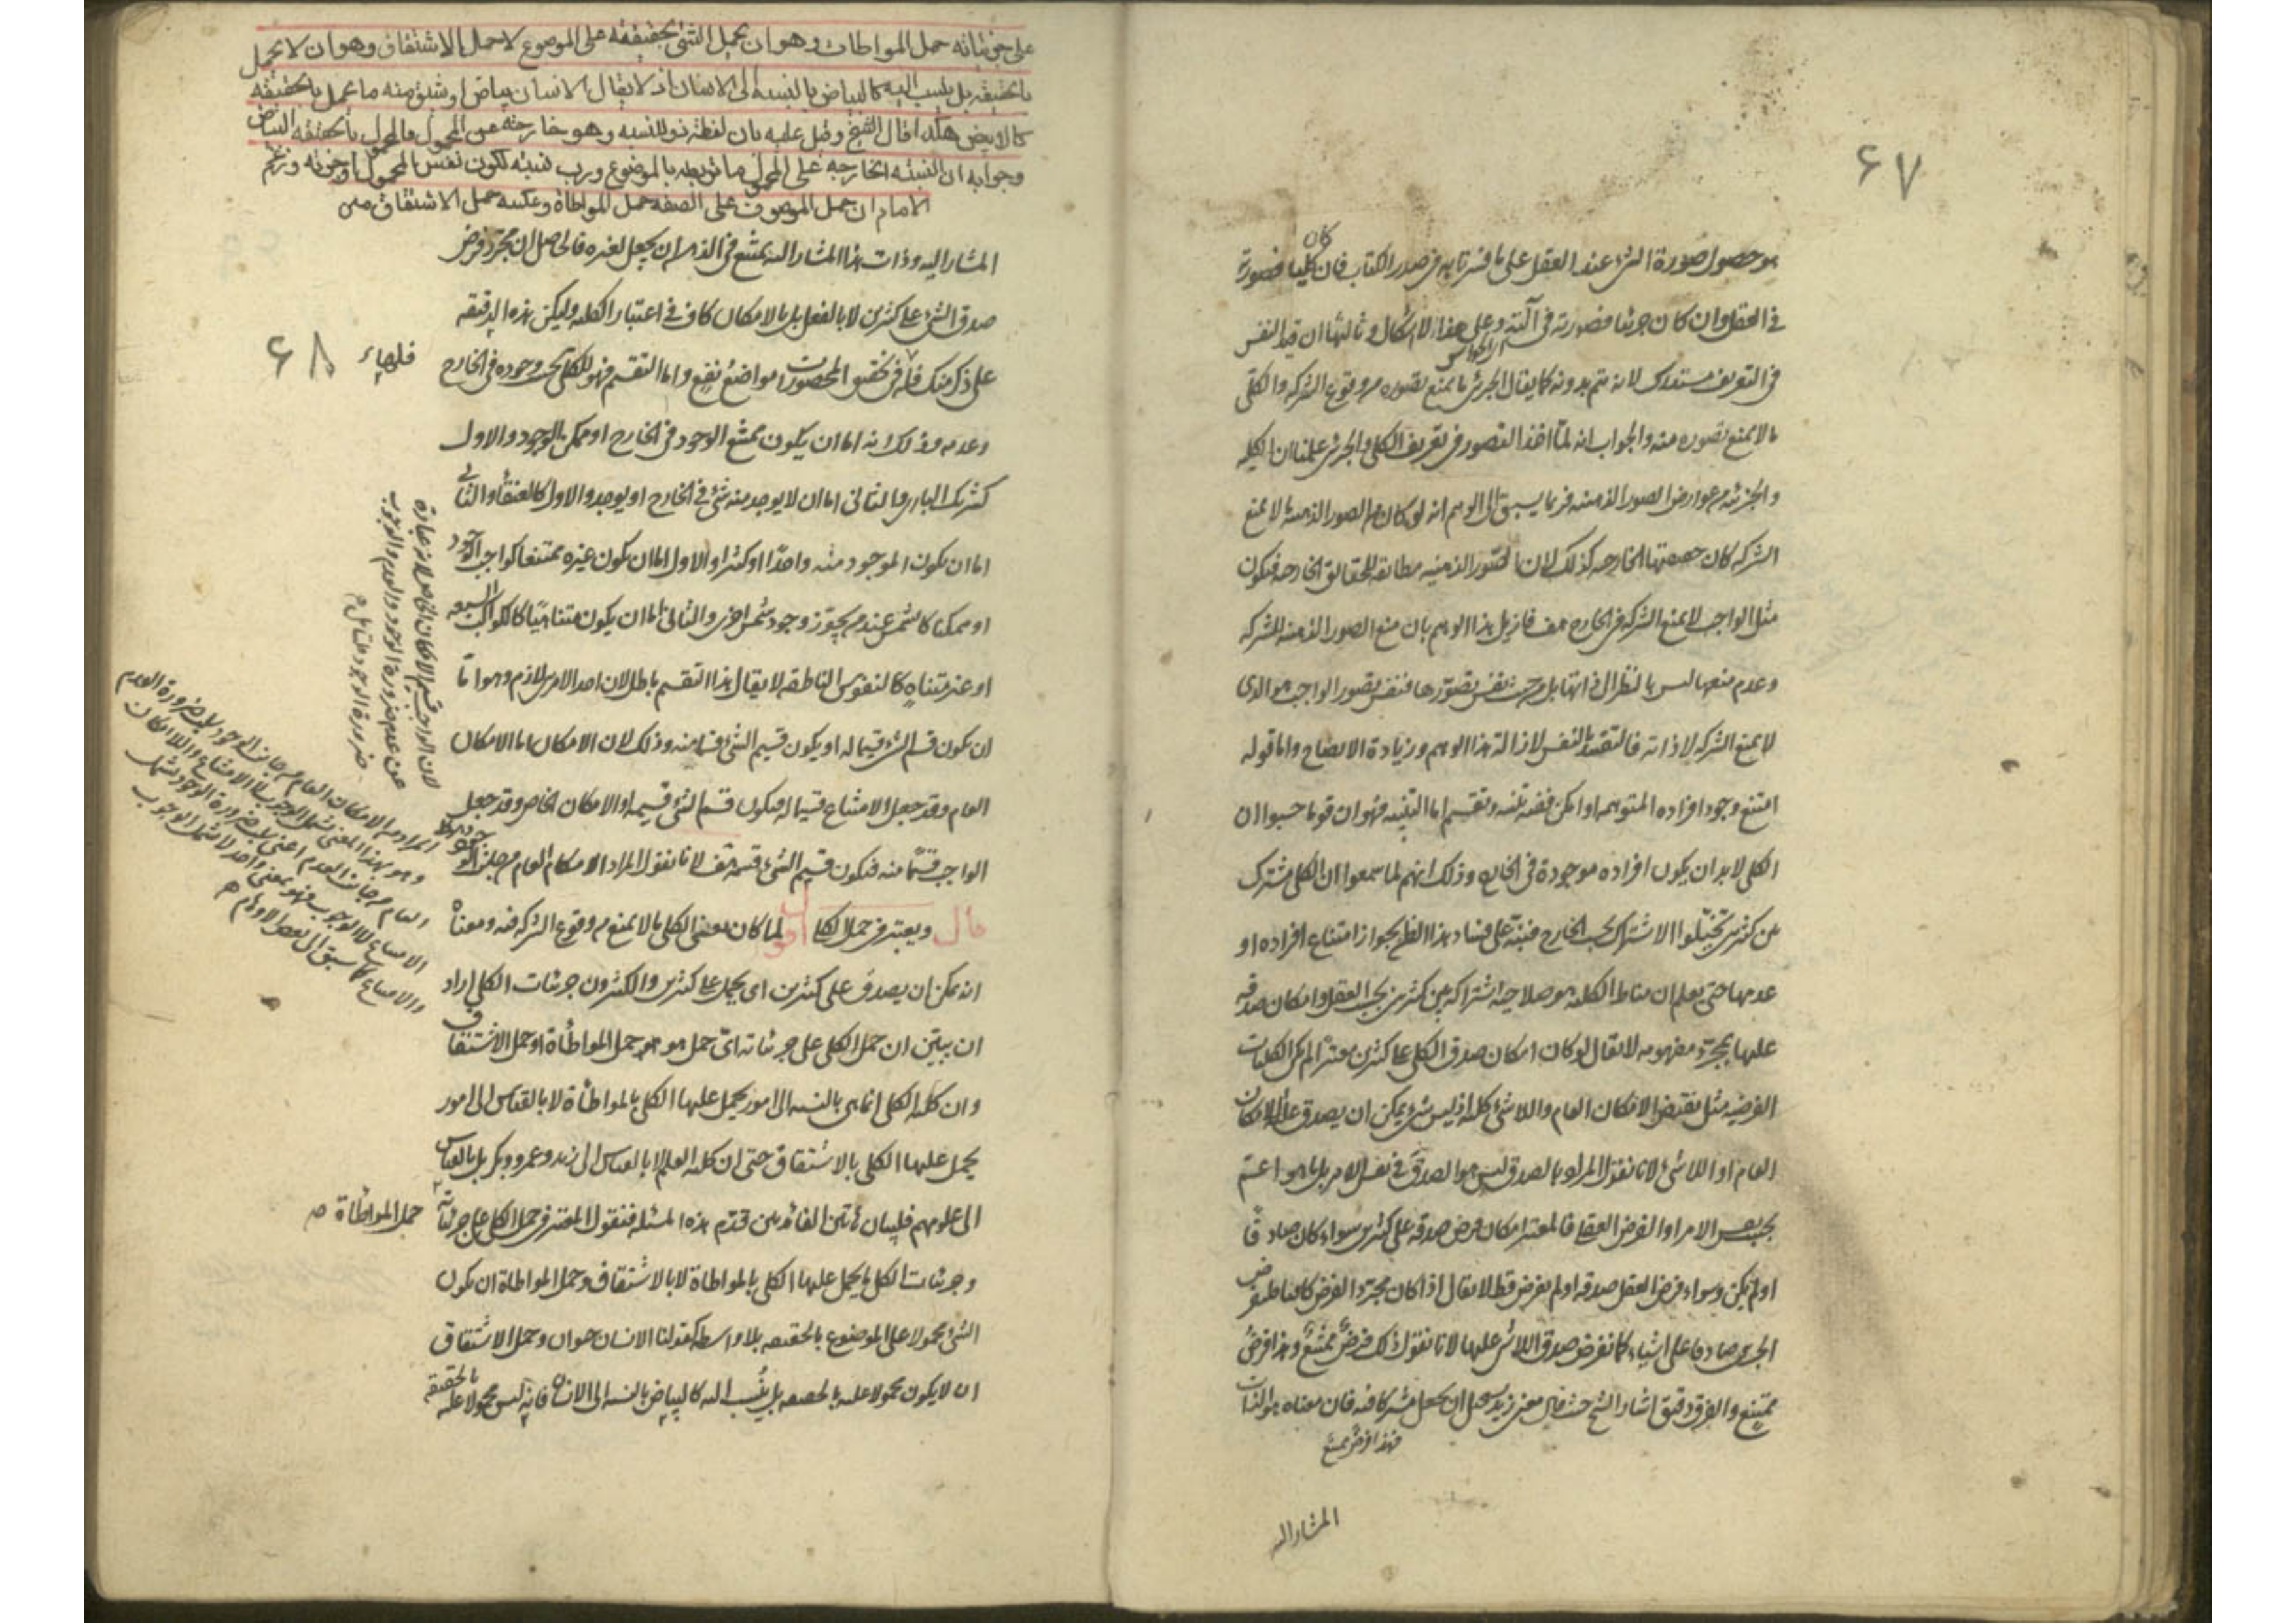 ٦٧
هو حصول صورة الشئ عند العقل على ما فسرتا به في صدر الكتاب فان كان كليا فصورته
في العقل وان كان جزئيا فصورته في آلته وعلى هذا لا اشكال وثالثها ان قيد النفس
في التعريف مستدرك لانه يتم بدونه كما يقال الجزئي ما يمنع تصوره من وقوع الشركة والكلي
ما لا يمنع تصوره منه والجواب انه لما اخذ التصور في تعريف الكلي والجزئي علمنا ان الكلية
والجزئية من عوارض الصور الذهنية فربما يسبق الى الوهم انه لو كان الصور الذهنية لا تمنع
الشركة كان حصصها الخارجية كذلك لان الصور الذهنية مطابقة للحقائق الخارجة فيكون
مثل الواجب لا يمنع الشركة في الخارج هف فازيل هذا الوهم بان منع الصور الذهنية للشركة
وعدم منعها ليس بالنظر الى ذاتها بل من حيث نفس تصورها فنفس تصور الواجب هو الذي
لا يمنع الشركة لا ذاته فالتقييد بالنفس لازالة هذا الوهم وزيادة الايضاح واما قوله
امتنع وجود افراده المتوهمة او امكن ففيه تنبيه وتقسيم اما التنبيه فهو ان قوما حسبوا ان
الكلي لا بد ان يكون افراده موجودة في الخارج وذلك انهم لما سمعوا ان الكلي مشترك
بين كثيرين تخيلوا الاشتراك بحسب الخارج فنبه على فساد هذا الظن بجواز امتناع افراده او
عدمها حتى يعلم ان مناط الكلية هو صلاحية اشتراكه بين كثيرين بحسب العقل وامكان صدقه
عليها بمجرد مفهومه لا يقال لو كان امكان صدق الكلي على كثيرين معتبرا لم يكن الكليات
الفرضية مثل نقيض الامكان العام واللاشئ كلية اذ ليس شئ يمكن ان يصدق عليه اللاامكان
العام او اللاشئ لانا نقول المراد بالصدق ليس هو الصدق في نفس الامر بل ما هو اعم
بحسب نفس الامر او الفرض العقلي فالمعتبر امكان فرض صدقه على كثيرين سواء كان صادقا
او لم يكن وسواء فرض العقل صدقه او لم يفرض قط لا يقال اذا كان مجرد الفرض كافيا فلنفرض
الجزئي صادقا على اشياء كما نفرض صدق اللاشئ عليها لانا نقول ذلك فرض ممتنع وهذا فرض
ممتنع والفرق دقيق اشار الشيخ حيث قال معنى زيد يستحيل ان يجعل مشتركا فيه فان معناه هو الذات
فهذا فرض ممتنع
المشار اليه
على جزئياته حمل المواطات وهو ان يحمل الشئ بحقيقته على الموضوع لا حمل الاشتقاق وهو ان لا يحمل
بالحقيقة بل ينسب اليه كالبياض بالنسبة الى الانسان اذ لا يقال الانسان بياض او يشتق منه ما يحمل بالحقيقة
كالابيض هكذا قال الشيخ وقيل عليه بان لفظة ذو للنسبة وهو خارجة عن المحمول فالمحمول بالحقيقة البياض
وجوابه ان النسبة الخارجة على المحمول ما تربطه بالموضوع ورب نسبة تكون نفس المحمول او جزئه وزعم
الامام ان حمل الموصوف على الصفة حمل المواطاة وعكسه حمل الاشتقاق متن
المشار اليه وذات هذا المشار اليه يمتنع في الذهن ان يجعل لغيره فالحاصل ان مجرد فرض
صدق الشئ على كثيرين لا بالفعل بل بالامكان كاف في اعتبار الكلية وليكن هذه الدقيقة
على ذكر منك فله في تحقيق المحصورات مواضع نفع واما التقسيم فهو للكلي بحسب وجوده في الخارج
٦٨
وعدمه وذلك انه اما ان يكون ممتنع الوجود في الخارج او ممكن الوجود والاول
كشريك الباري والثاني اما ان لا يوجد منه شئ في الخارج او يوجد والاول كالعنقاء والثاني
اما ان يكون الموجود منه واحدا او كثيرا والاول اما ان يكون غيره ممتنعا كواجب الوجود
او ممكنا كالشمس عند من يجوز وجود شمس اخرى والثاني اما ان يكون متناهيا كالكواكب السبعة
او غير متناه كالنفوس الناطقة لا يقال هذا التقسيم باطل لان احد الامرين لازم وهو اما
ان يكون قسم الشئ قسيما له او يكون قسيم الشئ قسما منه وذلك لان الامكان اما الامكان
العام وقد جعل الامتناع قسيما له فيكون قسم الشئ قسيمه او الامكان الخاص وقد جعل
الواجب قسما منه فيكون قسيم الشئ قسمه هف لانا نقول المراد الامكان العام من جانب الوجود
قال ويعتبر في حمل الكلي اقول لما كان معنى الكلي ما لا يمنع من وقوع الشركة فيه ومعناه
انه يمكن ان يصدق على كثيرين اي يحمل على كثيرين والكثيرون جزئيات الكلي اراد
ان يبين ان حمل الكلي على جزئياته اي حمل هو هو حمل المواطأة او حمل الاشتقاق
وان كلية الكلي انما هي بالنسبة الى امور يحمل عليها الكلي بالمواطأة لا بالقياس الى امور
يحمل عليها الكلي بالاشتقاق حتى ان كلية العلم لا بالقياس الى زيد وعمرو وبكر بل بالقياس
الى علومهم فلبيان هاتين الفائدتين قدم هذه المسئلة فنقول المعتبر في حمل الكلي على جزئياته
حمل المواطأة
وجزئيات الكلي ما يحمل عليها الكلي بالمواطاة لا بالاشتقاق وحمل المواطاة ان يكون
الشئ محمولا على الموضوع بالحقيقة بلا واسطة كقولنا الانسان حيوان وحمل الاشتقاق
ان لا يكون محمولا عليه بالحقيقة بل ينسب اليه كالبياض بالنسبة الى الانسان فانه ليس محمولا عليه بالحقيقة
لان الواجب قسيم الامكان الخاص لانه عبارة
عن عدم ضرورة الوجود والعدم والوجوب
ضرورة الوجود فتأمل
المراد من الامكان العام من جانب الوجود سلب ضرورة العدم
وهو بهذا المعنى يشمل الوجوب